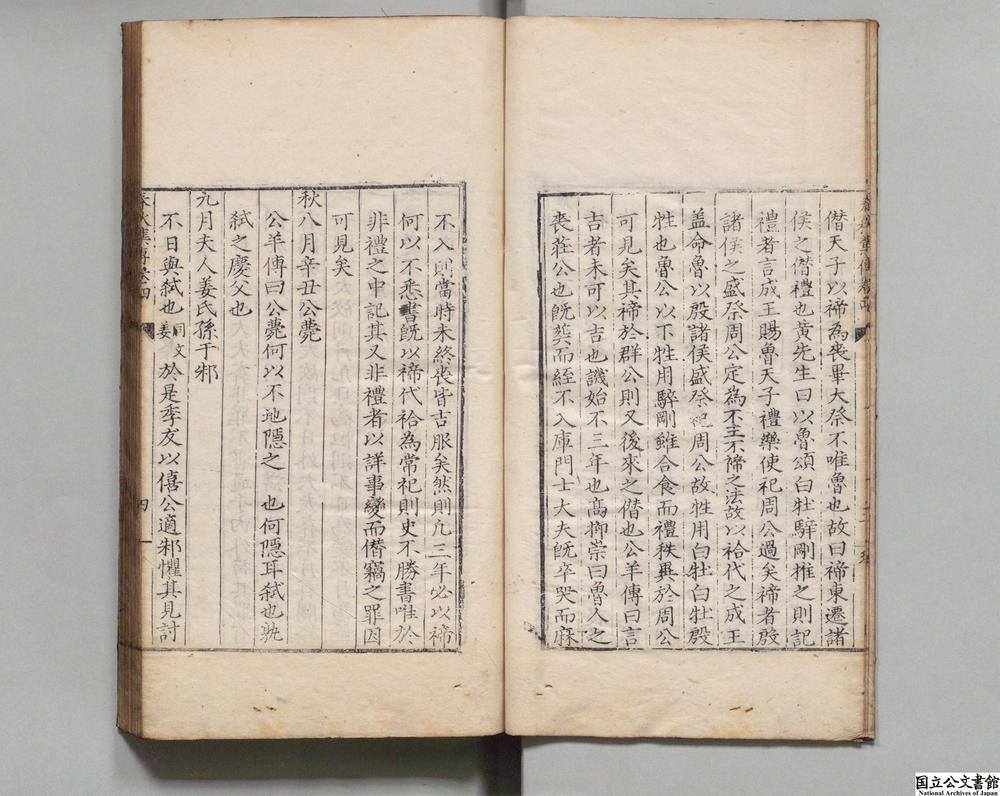 僭天子以禘為喪畢大祭不唯魯也故曰禘東遷諸
侯之僭禮也黄先生曰以魯頌白牡騂剛推之則記
禮者言成王賜魯天子禮樂使祀周公過矣禘者殷
諸侯之盛祭周公定為不王不禘之法故以祫代之成王
盖命魯以殷諸侯盛祭祀周公故牲用白牡白牡殷
牲也魯公以下牲用騂剛雖合食而禮秩異於周公
可見矣其禘於群公則又後來之僭也公羊傳曰言
吉者未可以吉也譏始不三年也髙抑崇曰魯人之
喪莊公也既葬而絰不入庫門士大夫既卒哭而麻
不入則當時未終喪皆吉服矣然則凡三年必以禘
何以不悉書既以禘代祫為常祀則史不勝書唯於
非禮之中記其又非禮者以詳事變而僭竊之罪因
可見矣
秋八月辛丑公薨
公羊傳曰公薨何以不地隱之也何隱耳弑也孰
弑之慶父也
九月夫人姜氏孫于邾
不日與弑也
同文
姜
於是季友以僖公適邾懼其見討
春秋集傳卷四
四
国立公文書館
National Archives of Japan